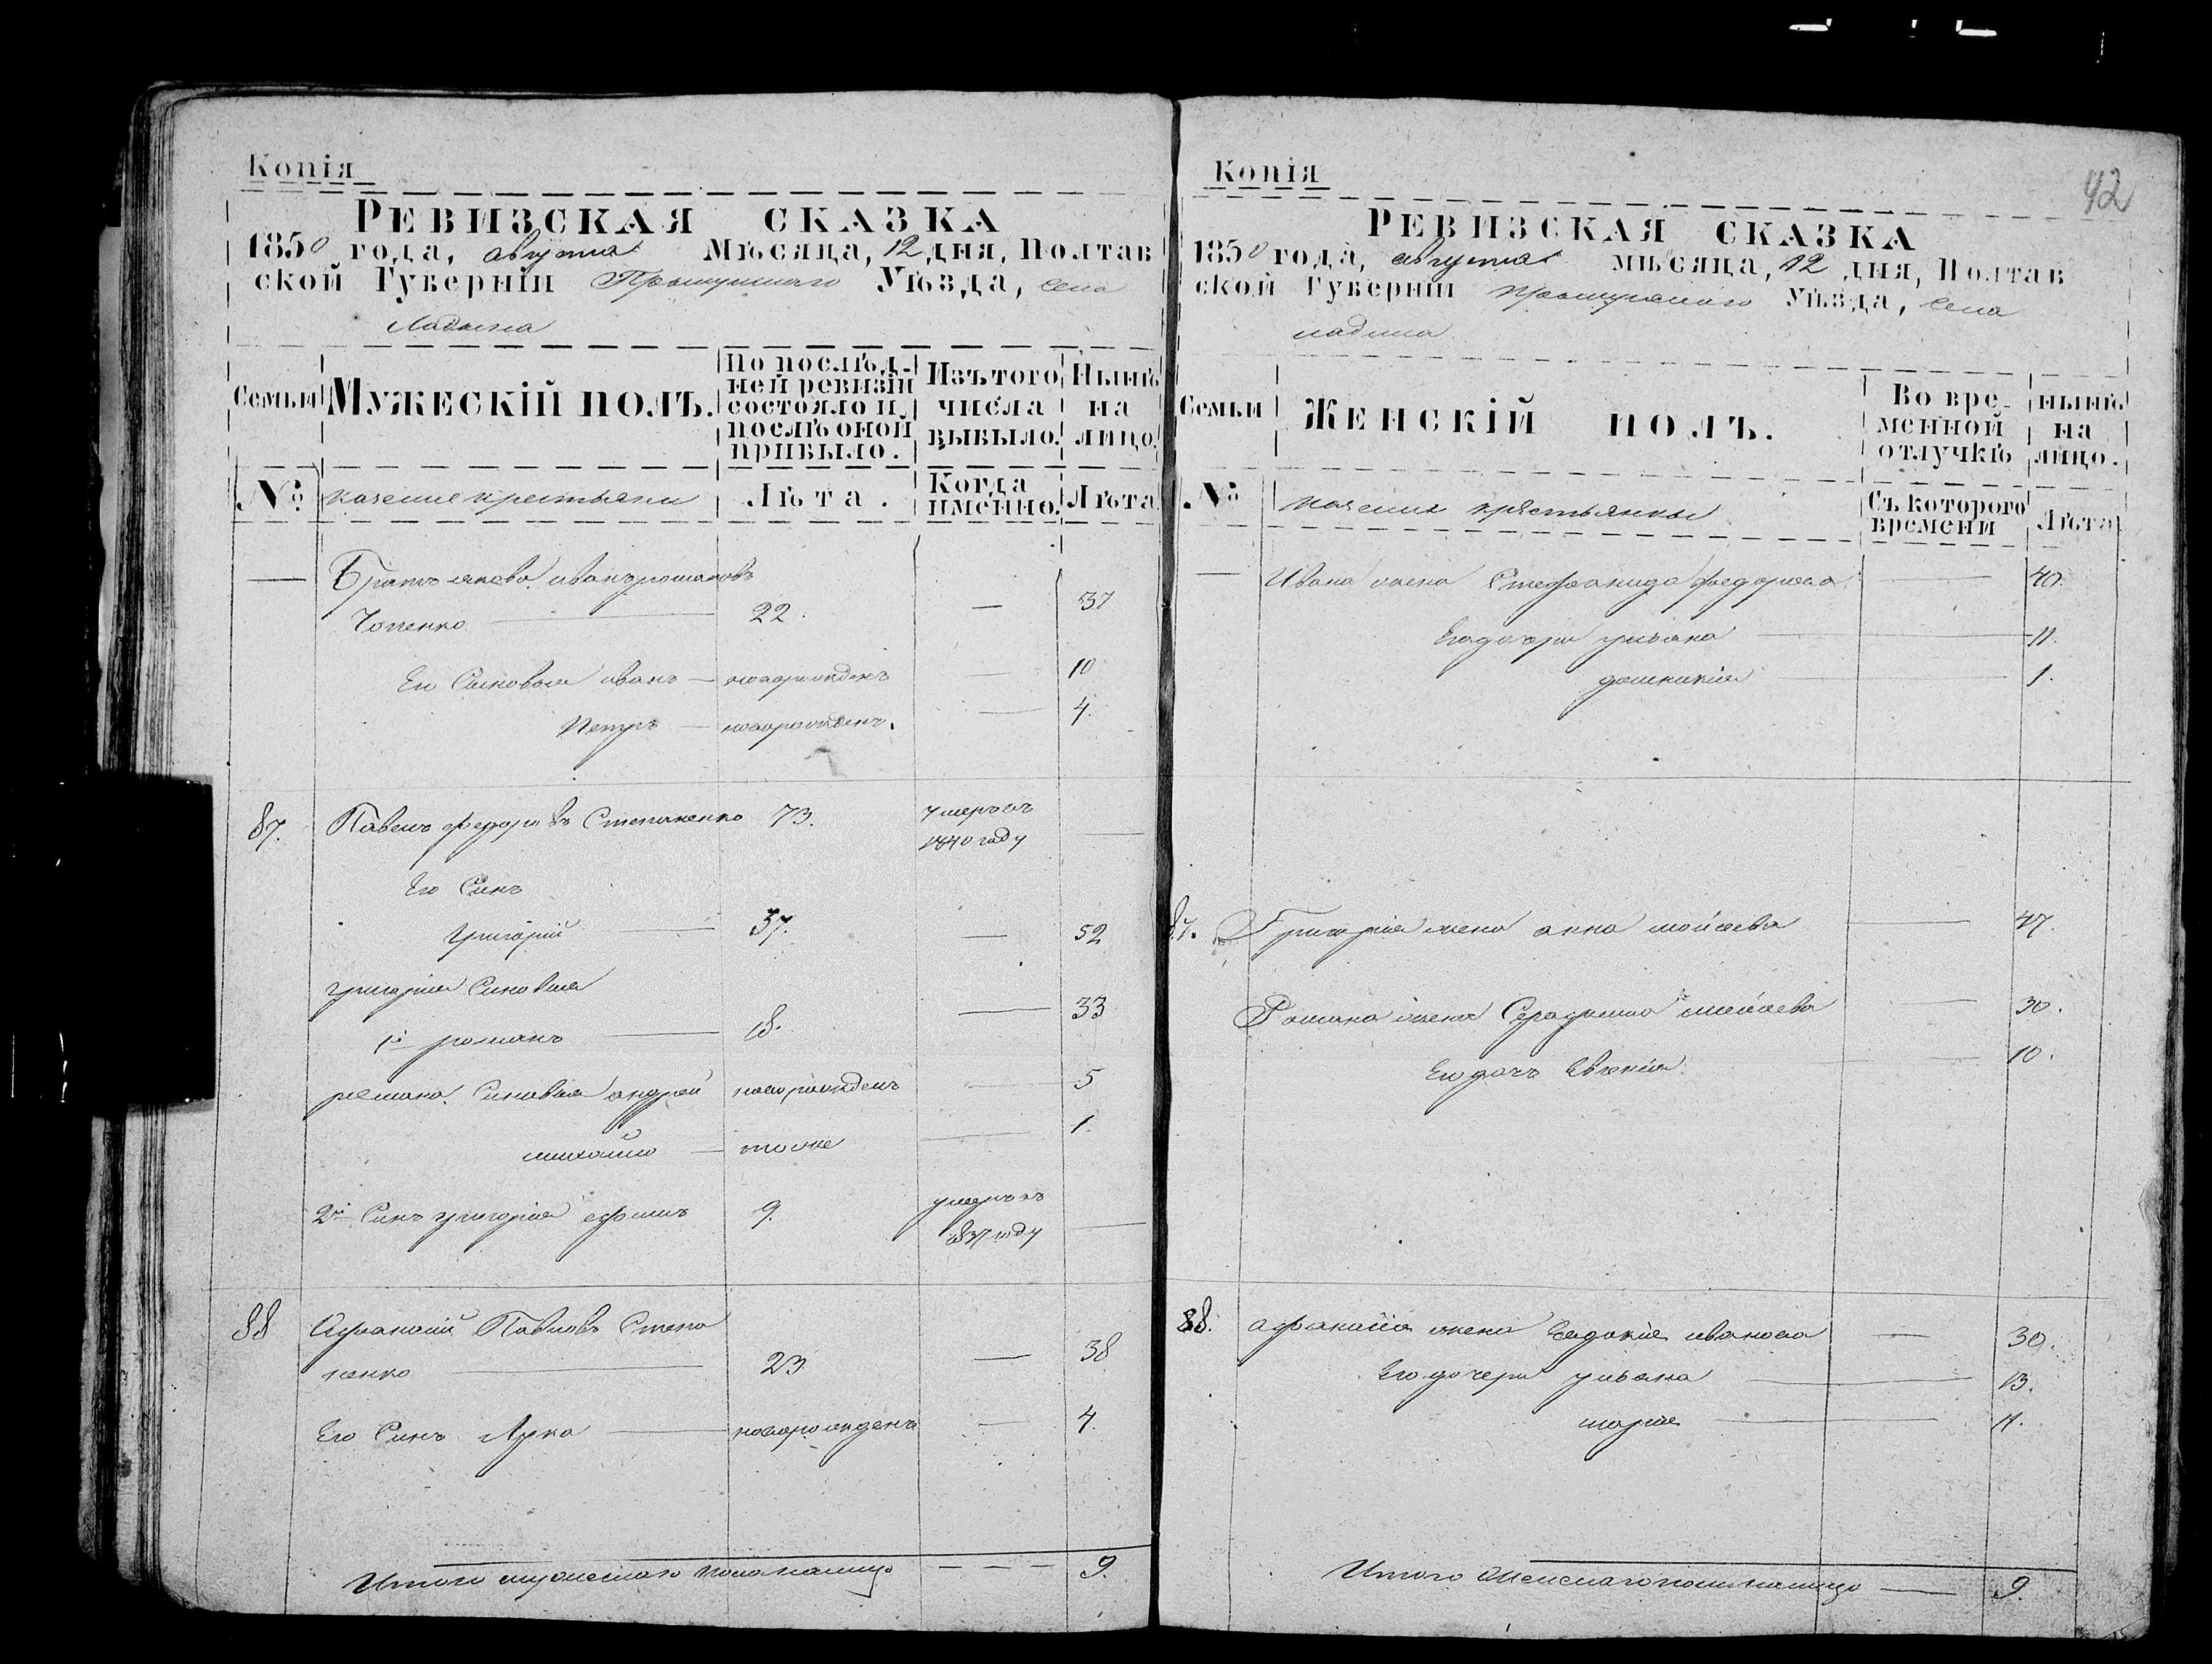 Копія
РЕВИЗСКАЯ СКАЗКА
1850 года, августа Мѣсяца, 12 дня, Полтав
ской Губерніи Прилуцкаго Уѣзда, села
Ладина
Семьи
МУЖЕСКІЙ ПОЛЪ.
По послѣд-
ней ревизіи
состояло и
послѣ оной
прибыло.
Изъ того
числа
выбыло.
Нынѣ
на
лицо.
№
казенные крестьяни
Лѣта.
Когда
именно.
Лѣта
Братъ якова иванъ романовъ
Чопенко 22. 37
Его Сыновья иванъ новорожденъ 10
Петръ новорожденъ. 4.
87. Павелъ федоровъ Степаненко 73. умеръ въ
1840 году
Его Синъ
григорій 37. 52
григорія Синовья
1й романъ 18. 33
романа Синовья андрей новорожденъ 5
михайло тоже 1.
2й Синъ григорія ефимъ 9. умеръ въ
1837 году
88 Афанасій Павловъ Степа
ненко 23 38
Его Синъ Лука новорожденъ 4.
Итого мужескаго пола на лицо 9.
Копія
42
РЕВИЗСКАЯ СКАЗКА
1850 года, августа мѣсяца, 12 дня, Полтав
ской Губерніи Прилуцкаго Уѣзда, села
ладина
Семьи
ЖЕНСКІЙ ПОЛЪ.
Во вре-
менной
отлучкѣ
нынѣ
на
лицо.
№
казенныя крестьянки
Съ которого
времени
Лѣта
Ивана жена Стефанида федорова 40.
Его дочери ульяна 11.
домникия 1.
87. Григорія жена анна мойсева 47.
Романа жена 30.
Его дочь Евгенія 10.
88. афанасія жена Евдокія иванова 39.
Его дочери ульяна 13.
марія 11.
Итого женскаго пола на лицо 9.